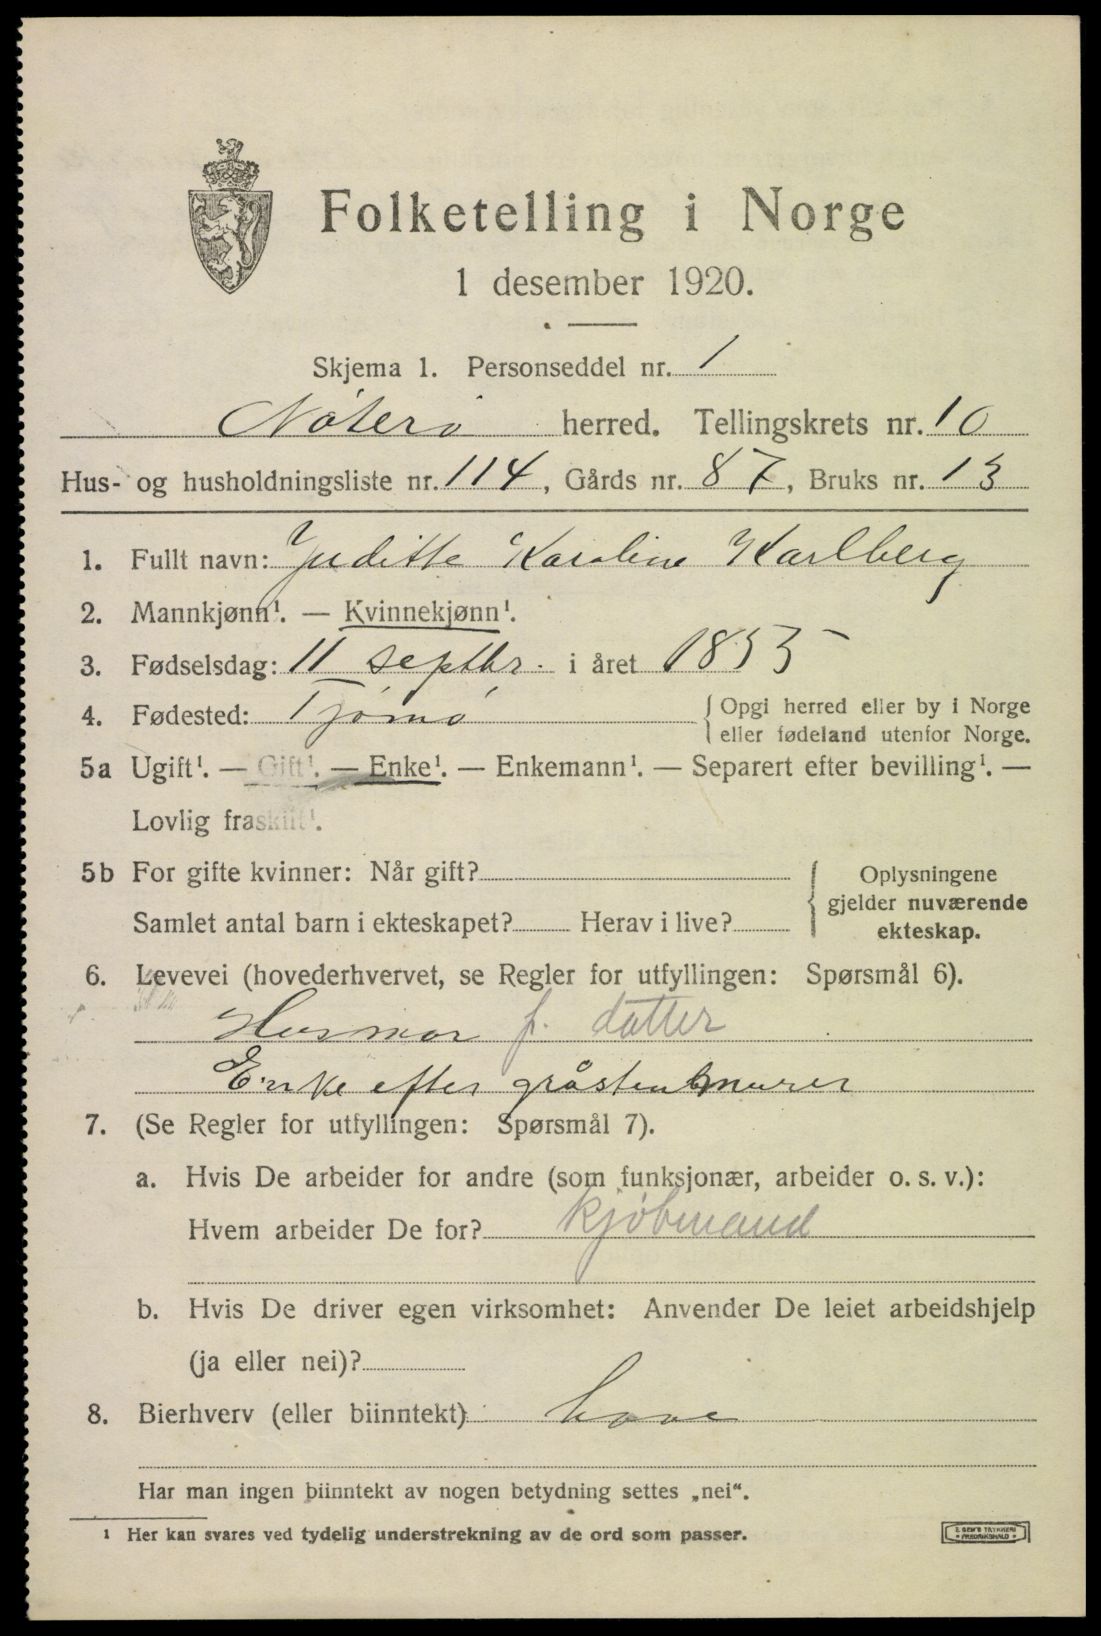 Folketelling i Norge
1 desember 1920.
Skjema 1. Personseddel nr. 1
Nøterø herred. Tellingskrets nr. 10
Hus- og husholdningsliste nr. 114, Gårds nr. 87, Bruks nr. 13
1. Fullt navn: Juditte Karoline Karlberg
2. Mannkjønn¹. — Kvinnekjønn¹.
3. Fødselsdag: 11 septbr. i året 1855
4. Fødested: Tjømø { Opgi herred eller by i Norge
eller fødeland utenfor Norge.
5a Ugift¹. — Gift¹. — Enke¹. — Enkemann¹. — Separert efter bevilling¹. —
Lovlig fraskilt¹.
5b For gifte kvinner: Når gift? { Oplysningene
gjelder nuværende
Samlet antal barn i ekteskapet? Herav i live?
ekteskap.
6. Levevei (hovederhvervet, se Regler for utfyllingen: Spørsmål 6).
Husmor f. datter
Enke efter gråstenmurer
7. (Se Regler for utfyllingen: Spørsmål 7).
a. Hvis De arbeider for andre (som funksjonær, arbeider o. s. v.):
Hvem arbeider De for? kjøbmand
b. Hvis De driver egen virksomhet: Anvender De leiet arbeidshjelp
(ja eller nei)?
8. Bierhverv (eller biinntekt)
Har man ingen biinntekt av nogen betydning settes „nei“.
¹ Her kan svares ved tydelig understrekning av de ord som passer.
E. SEM'S TRYKKERI
FREDRIKSHALD